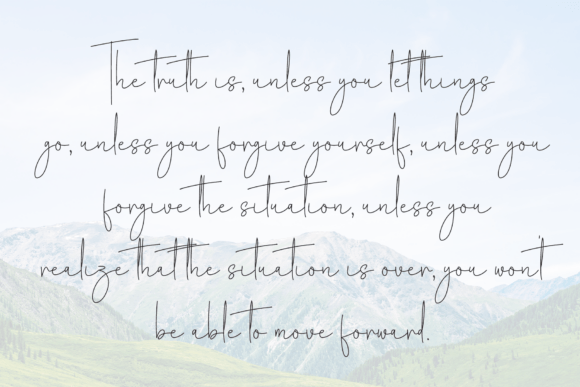 The truth is, unless you let things
go, unless you forgive yourself, unless you
forgive the situation, unless you
realize that the situation is over, you won't
be able to move forward.